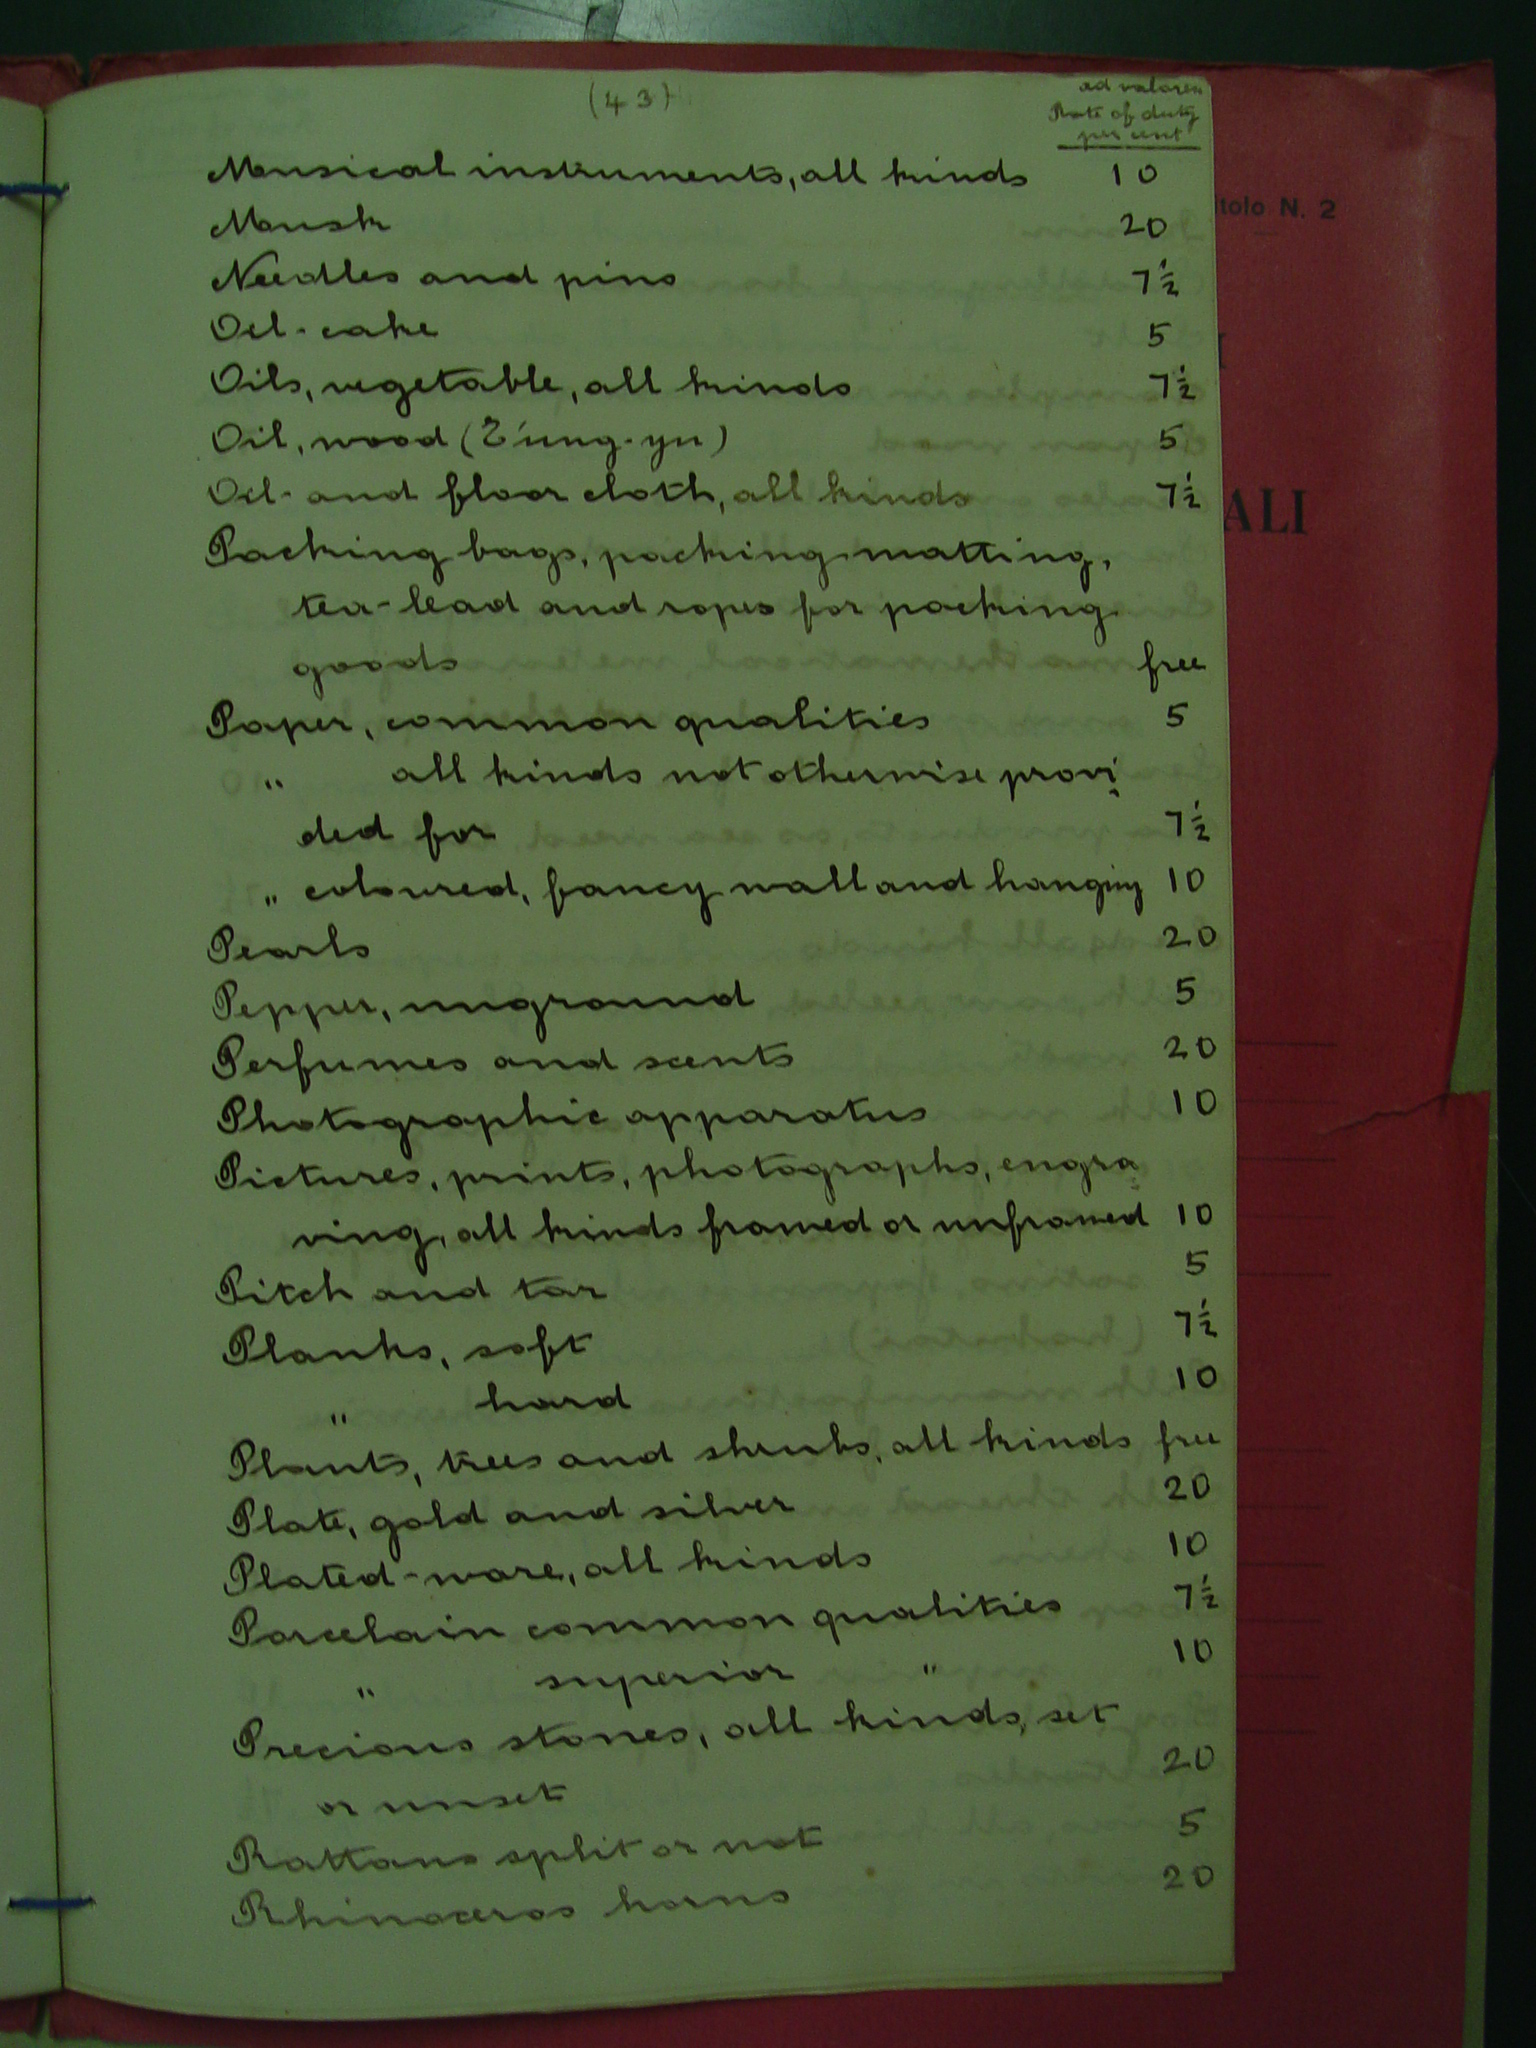 (43)
ad valorem
Rate of duty
per cent
Musical instruments, all kinds 10
Musk 20
Needles and pins 7½
Oil-cake 5
Oils, vegetable, all kinds 7½
Oil, wood (T'ung-yu) 5
Oil- and floor cloth, all kinds 7½
Packing bags, packing matting,
tea-lead and ropes for packing
goods free
Paper, common qualities 5
„ all kinds not otherwise provi
ded for 7½
„ coloured, fancy wall and hanging 10
Pearls 20
Pepper, unground 5
Perfumes and scents 20
Photographic apparatus 10
Pictures, prints, photographs, engra
ving, all kinds framed or unframed 10
Pitch and tar 5
Planks, soft 7½
„ hard 10
Plants, trees and shrubs, all kinds free
Plate, gold and silver 20
Plated-ware, all kinds 10
Porcelain common qualities 7½
„ superior „ 10
Precious stones, all kinds, set
or unset 20
Rattans split or not 5
Rhinoceros horns 20
tolo N. 2
I
ALI